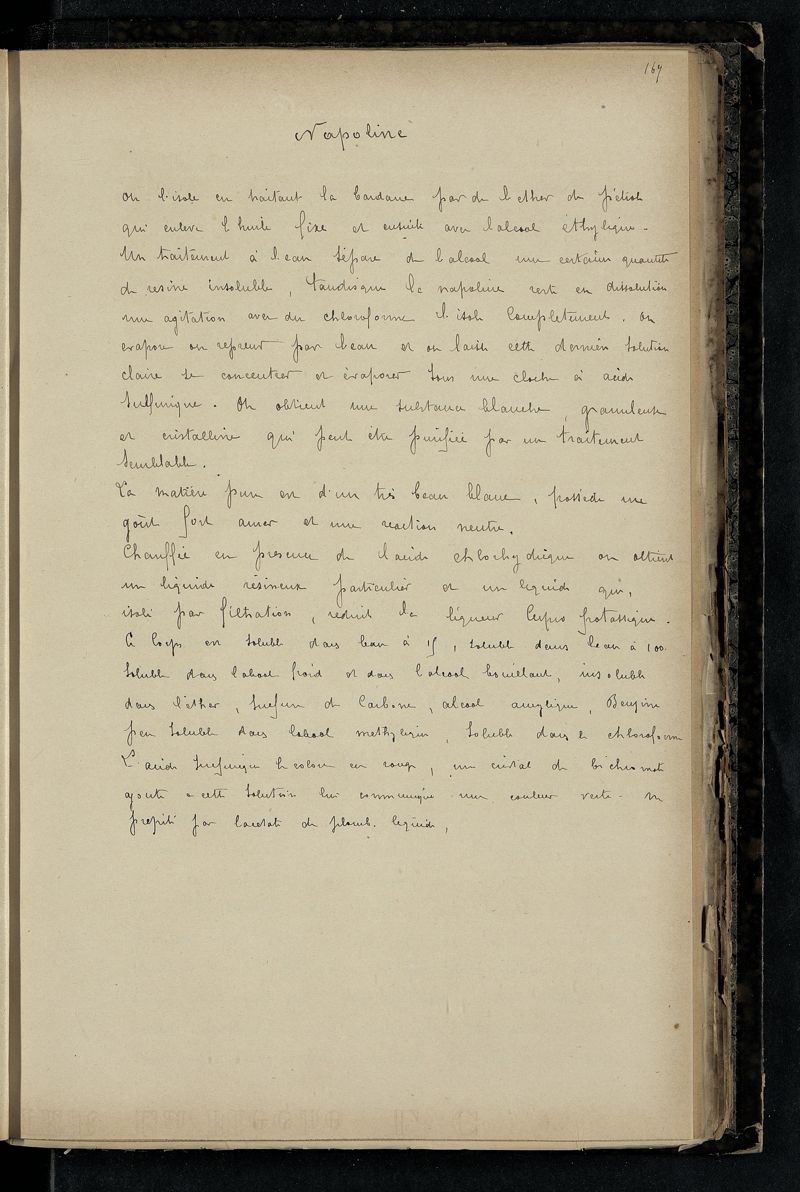 169
Napoline
On l'isole en traitant la bardane par de l'ether de pétrole
qui enleve l'huile fixe et ensuite avec l'alcool éthylique.
Un traitement à l'eau sépare de l'alcool une certaine quantité
de resine insoluble, tandisque la napoline reste en dissolution
une agitation avec du chloroforme l'isole completement. On
evapore on reprend par l'eau et on laisse cette dernière solution
claire se concentrer et évaporer sous une cloche à acide
sulfurique. On obtient une substance blanche, granuleuse
et cristalline qui peut être purifiée par un traitement
semblable.
La matière pure est d'un très beau blanc, possède une
goût fort amer et une reaction neutre.
Chauffée en presence de l'acide chlorhydrique on obtient
un liquide résineux particulier et un liquide qui,
isolé par filtration, reduit la liqueur cupro potassique.
Ce corps est soluble dans l'eau à 15, soluble dans l'eau à 100
soluble dans l'alcool froid et dans l'alcool bouillant, insoluble
dans l'éther, sulfure de Carbone, alcool amylique, Benzine
peu soluble dans l'alcool methylique, soluble dans le chloroforme
L'acide sulfurique le colore en rouge, un cristal de bichromate
ajouté a cette solution lui communique une couleur verte.
précipité par l'acetate de plomb liquide,